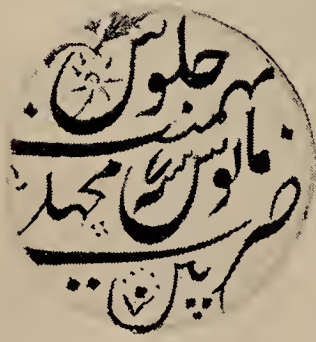 جلوس
میمنت
مانوس سنه
مچهلی
ضرب
پتن